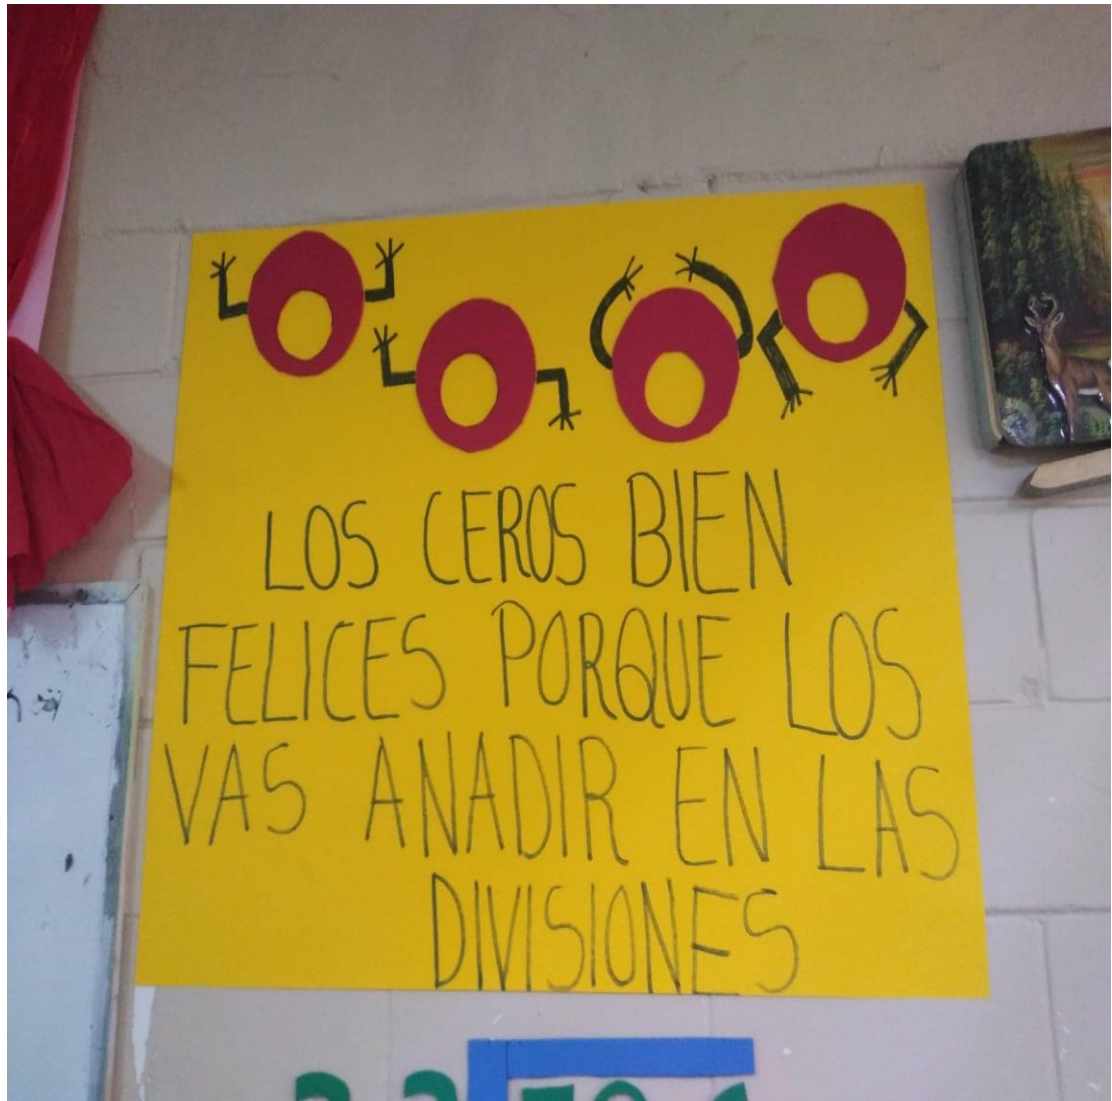 LOS CEROS BIEN
FELICES PORQUE LOS
VAS ANADIR EN LAS
DIVISIONES